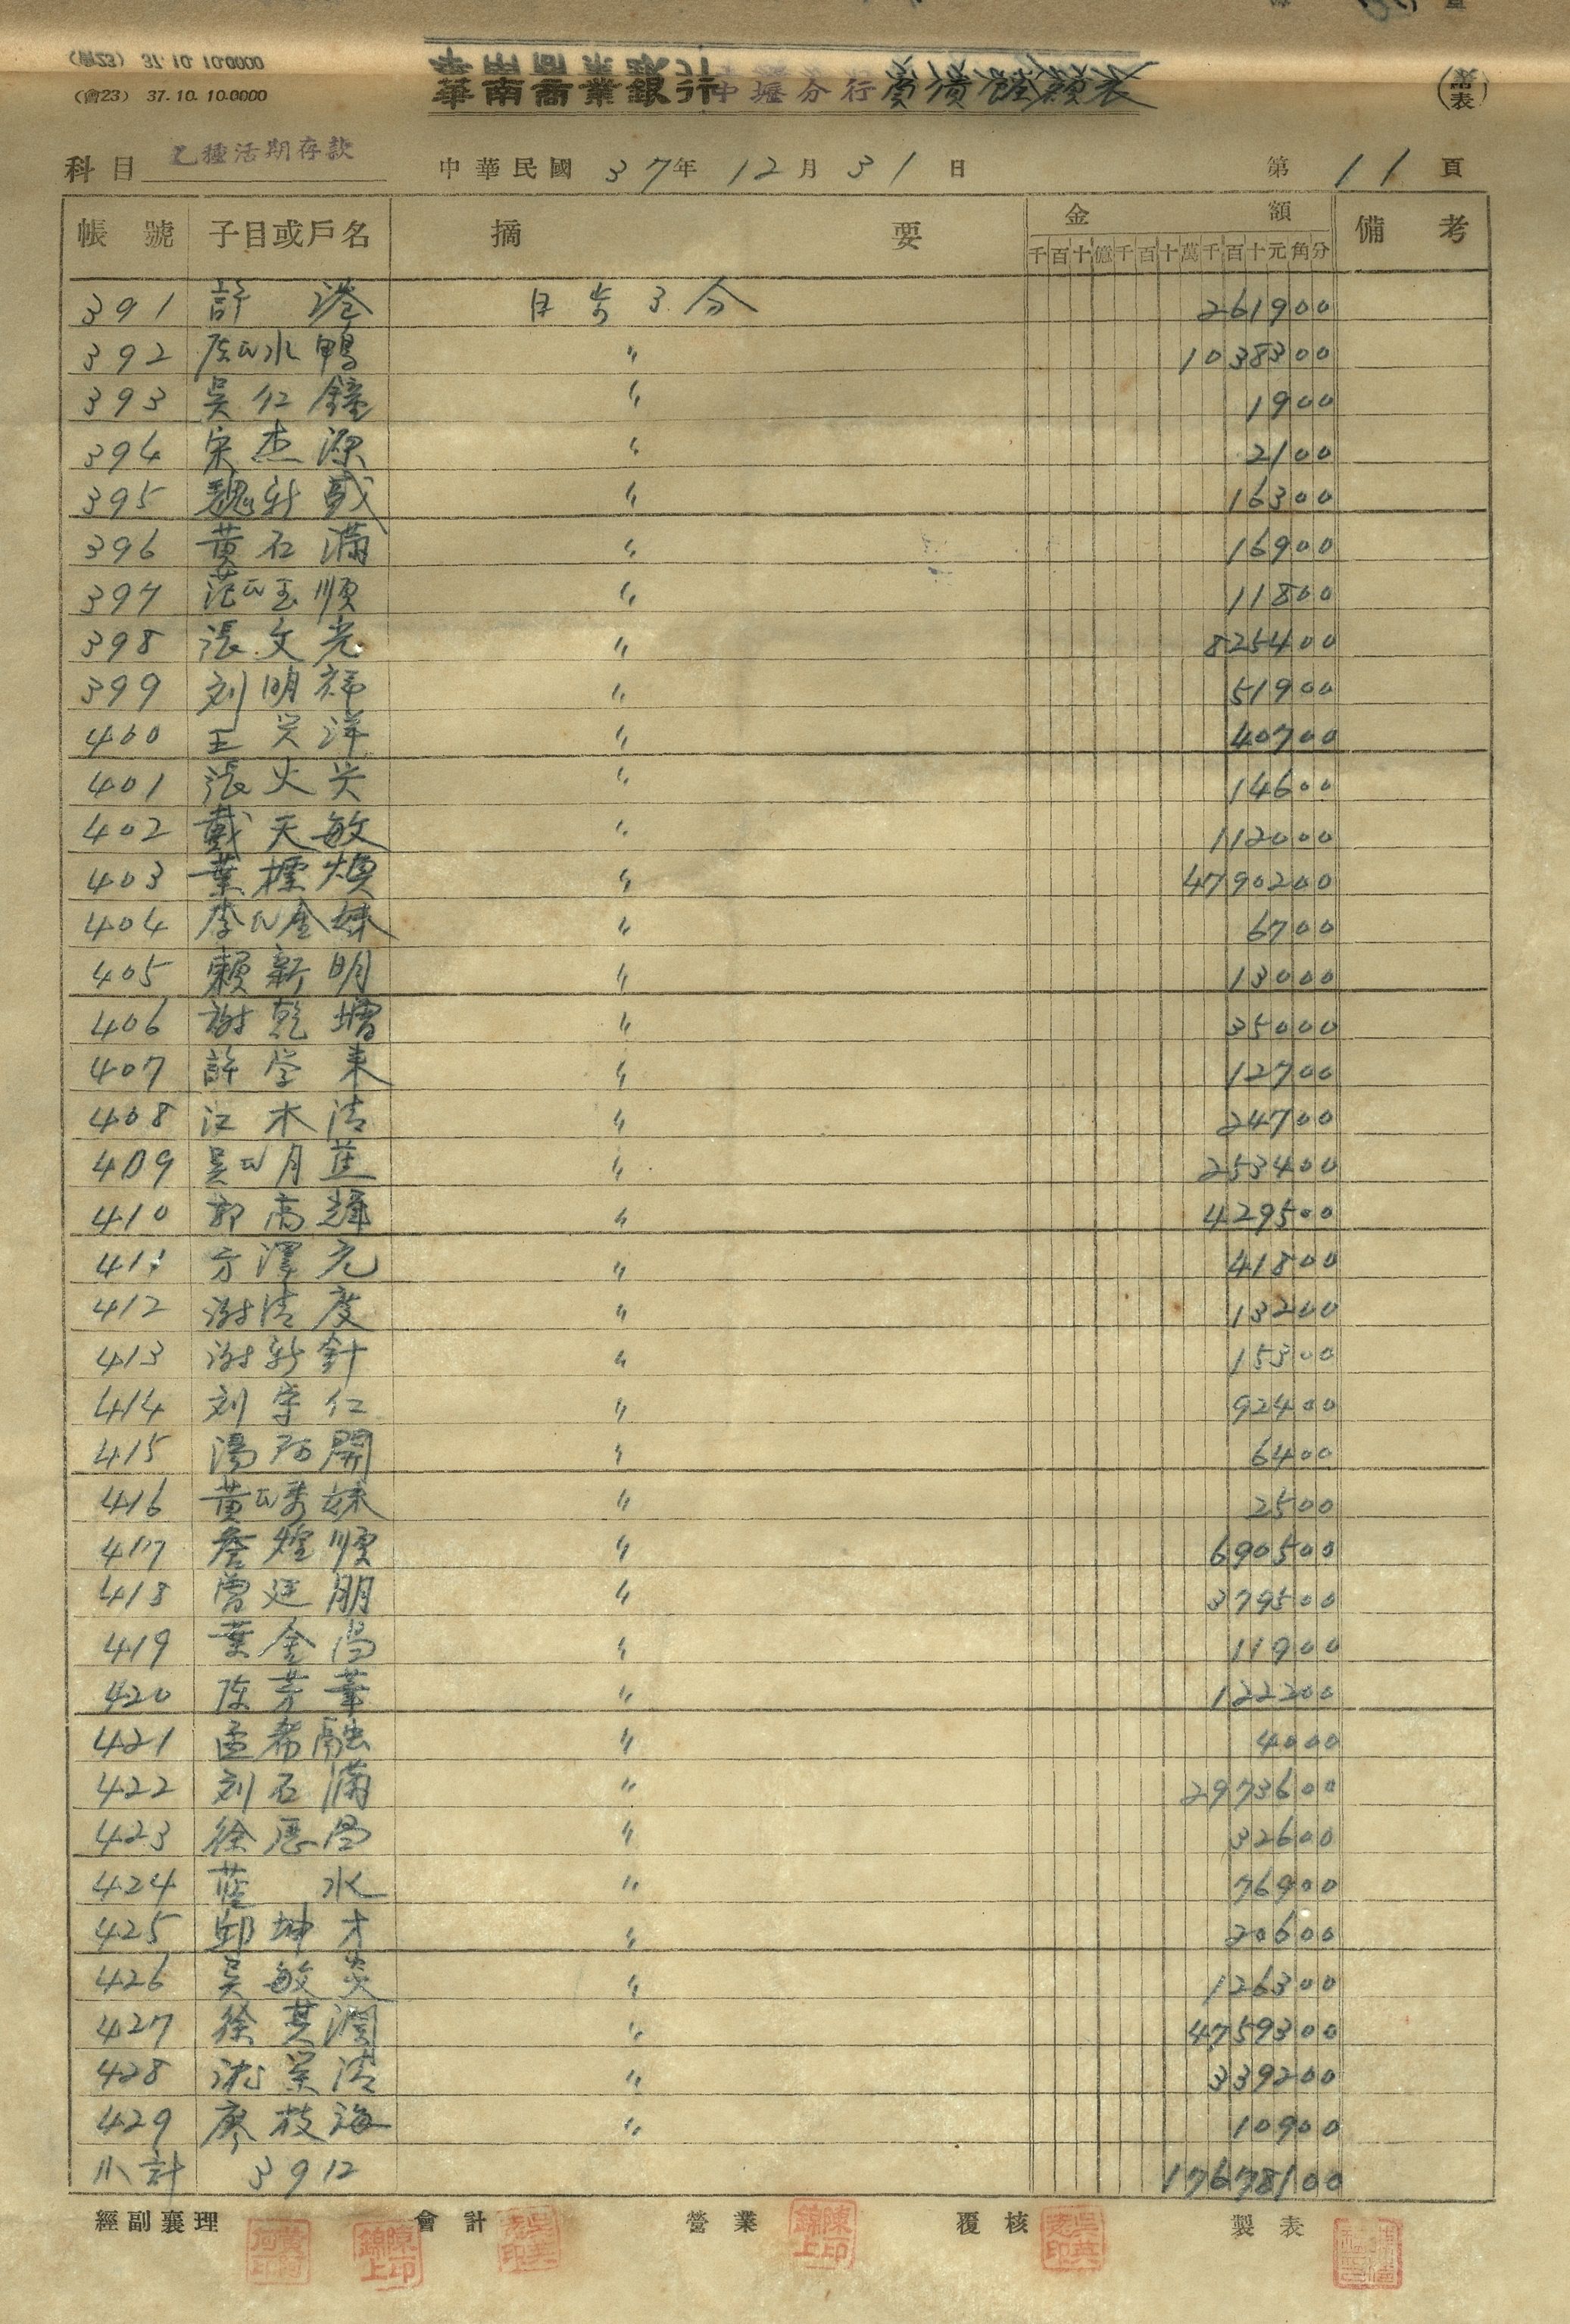 (會23) 37.10.10.0000
(會23) 37.10.10.0000
華南商業銀行中壢分行
科目 乙種活期存款 中華民國 37年 12月 31日 第 11 頁
帳號 子目或戶名 摘要 金額 備考
千百十億千百十萬千百十元角分
391 許港 日步3分 261900
392 陳氏水鴨 〃 1038300
393 吳仁鐘 〃 1900
394 宋杰源 〃 2100
395 魏新 〃 16300
396 黃石滿 〃 16900
397 范氏玉順 〃 11800
398 張文光 〃 825400
399 刘明 〃 51900
400 王兴洋 〃 40700
401 張火兴 〃 14600
402 戴天敏 〃 112000
403 葉標煥 〃 4790200
404 李氏金妹 〃 6700
405 賴新明 〃 13000
406 謝乾增 〃 35000
407 許学来 〃 12700
408 江木清 〃 24700
409 吳氏月 〃 253400
410 郭高 〃 429500
411 方澤元 〃 41800
412 謝清度 〃 13200
413 謝新針 〃 15300
414 刘守仁 〃 92400
415 湯阿開 〃 6400
416 黃氏秀妹 〃 2500
417 詹煌順 〃 690500
418 曾廷朋 〃 379500
419 葉金昌 〃 11900
420 陳芳華 〃 122200
421 孟希融 〃 4000
422 刘石滿 〃 2973600
423 徐恩昌 〃 32600
424 藍水 〃 76900
425 邱坤才 〃 20600
426 吳敏炎 〃 126300
427 徐其潤 〃 4759300
428 沈清 〃 339200
429 廖枝海 〃 10900
小計 39口 17678100
經副襄理 會計 營業 覆核 製表